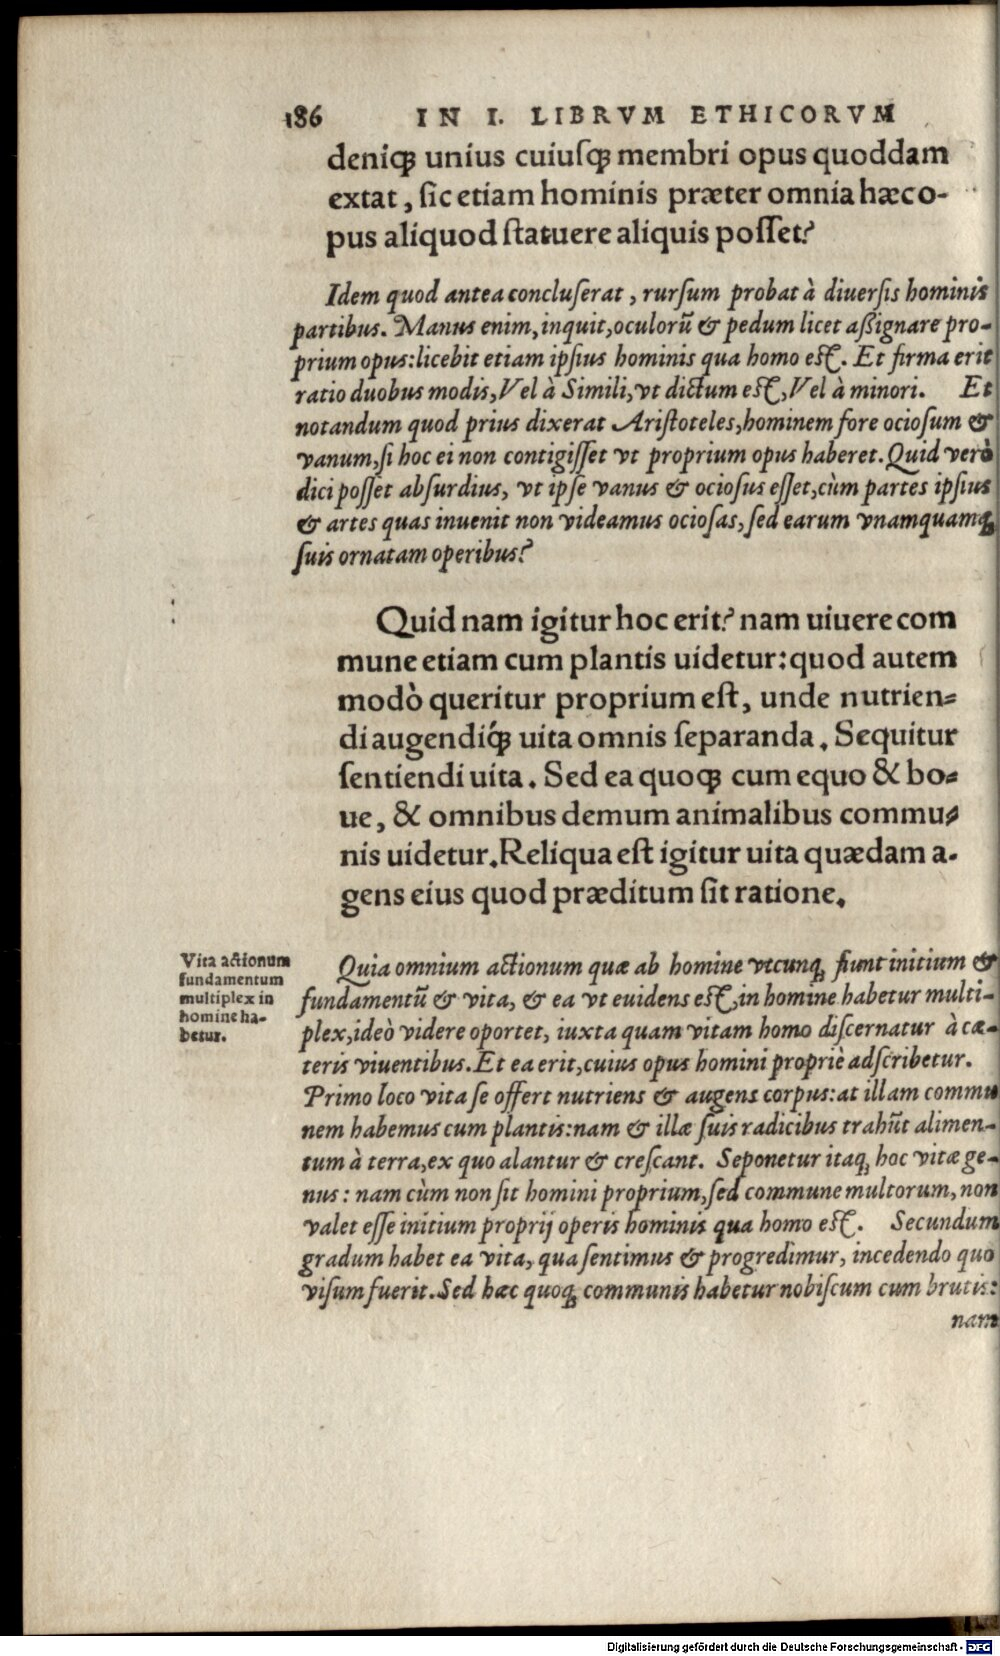 186 IN I. LIBRVM ETHICORVM
deniqꝫ unius cuiuſqꝫ membri opus quoddam
extat, ſic etiam hominis præter omnia hæc o-
pus aliquod ſtatuere aliquis poſſet?
Idem quod antea concluſerat, rurſum probat à diuerſis hominis
partibus. Manus enim, inquit, oculorū & pedum licet aßignare pro-
prium opus: licebit etiam ipſius hominis qua homo eſt. Et firma erit
ratio duobus modis, Vel à Simili, vt dictum eſt, Vel à minori. Et
notandum quod prius dixerat Ariſtoteles, hominem fore ocioſum &
vanum, ſi hoc ei non contigiſſet vt proprium opus haberet. Quid verò
dici poſſet abſurdius, vt ipſe vanus & ocioſus eſſet, cùm partes ipſius
& artes quas inuenit non videamus ocioſas, ſed earum vnamquamqꝫ
ſuis ornatam operibus?
Quid nam igitur hoc erit? nam uiuere com
mune etiam cum plantis uidetur: quod autem
modò queritur proprium eſt, unde nutrien-
di augendiq́ꝫ uita omnis ſeparanda. Sequitur
ſentiendi uita. Sed ea quoqꝫ cum equo & bo-
ue, & omnibus demum animalibus commu-
nis uidetur. Reliqua eſt igitur uita quædam a-
gens eius quod præditum ſit ratione.
Vita actionum
fundamentum
multiplex in
homine ha-
betur.
Quia omnium actionum quæ ab homine vtcunqꝫ fiunt initium &
fundamentū & vita, & ea vt euidens eſt, in homine habetur multi-
plex, ideò videre oportet, iuxta quam vitam homo diſcernatur à cæ-
teris viuentibus. Et ea erit, cuius opus homini propriè adſcribetur.
Primo loco vita ſe offert nutriens & augens corpus: at illam commu
nem habemus cum plantis: nam & illæ ſuis radicibus trahūt alimen-
tum à terra, ex quo alantur & creſcant. Seponetur itaqꝫ hoc vitæ ge-
nus: nam cùm non ſit homini proprium, ſed commune multorum, non
valet eſſe initium proprij operis hominis qua homo eſt. Secundum
gradum habet ea vita, qua ſentimus & progredimur, incedendo quo
viſum fuerit. Sed hæc quoqꝫ communis habetur nobiſcum cum brutis:
nam
Digitalisierung gefördert durch die Deutsche Forschungsgemeinschaft - DFG